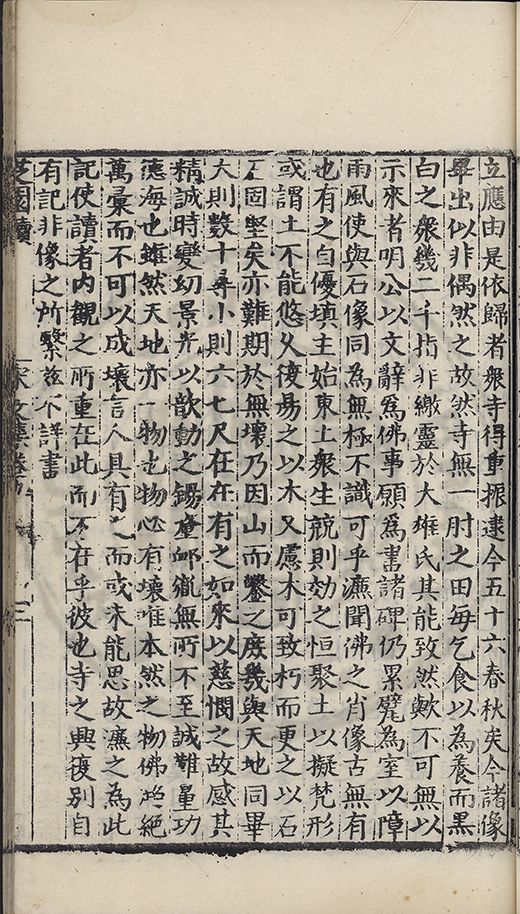 立應由是依歸者衆寺得重振逮今五十六春秋矣今諸像
畢出似非偶然之故然寺無一肘之田每乞食以為養而黑
白之衆幾二千指非繳靈於大雄氏其能致然歟不可無以
示來者明公以文辭爲佛事願為書諸碑仍累甓為室以障
雨風使與石像同為無極不識可乎濂聞佛之肖像古無有
也有之自優填主始東土衆生競則効之恒聚土以擬梵形
或謂土不能悠久復易之以木又慮木可致朽而更之以石
石固堅矣亦難期於無壞乃因山而鑿之庶幾與天地同畢
大則數十尋小則六七尺在在有之如來以慈憫之故感其
精誠時變幻景光以歆動之錫座邺徹無所不至誠難量功
德海也雖然天地亦一物也物必有壞唯本然之物佛
絕
萬彙而不可以成壞言人具有之而或未能思故濂之為此
記使讀者内觀之所重在此而不在乎彼也寺之興復別自
有記非像之所繫茲不詳書
芝園續
宋文集卷